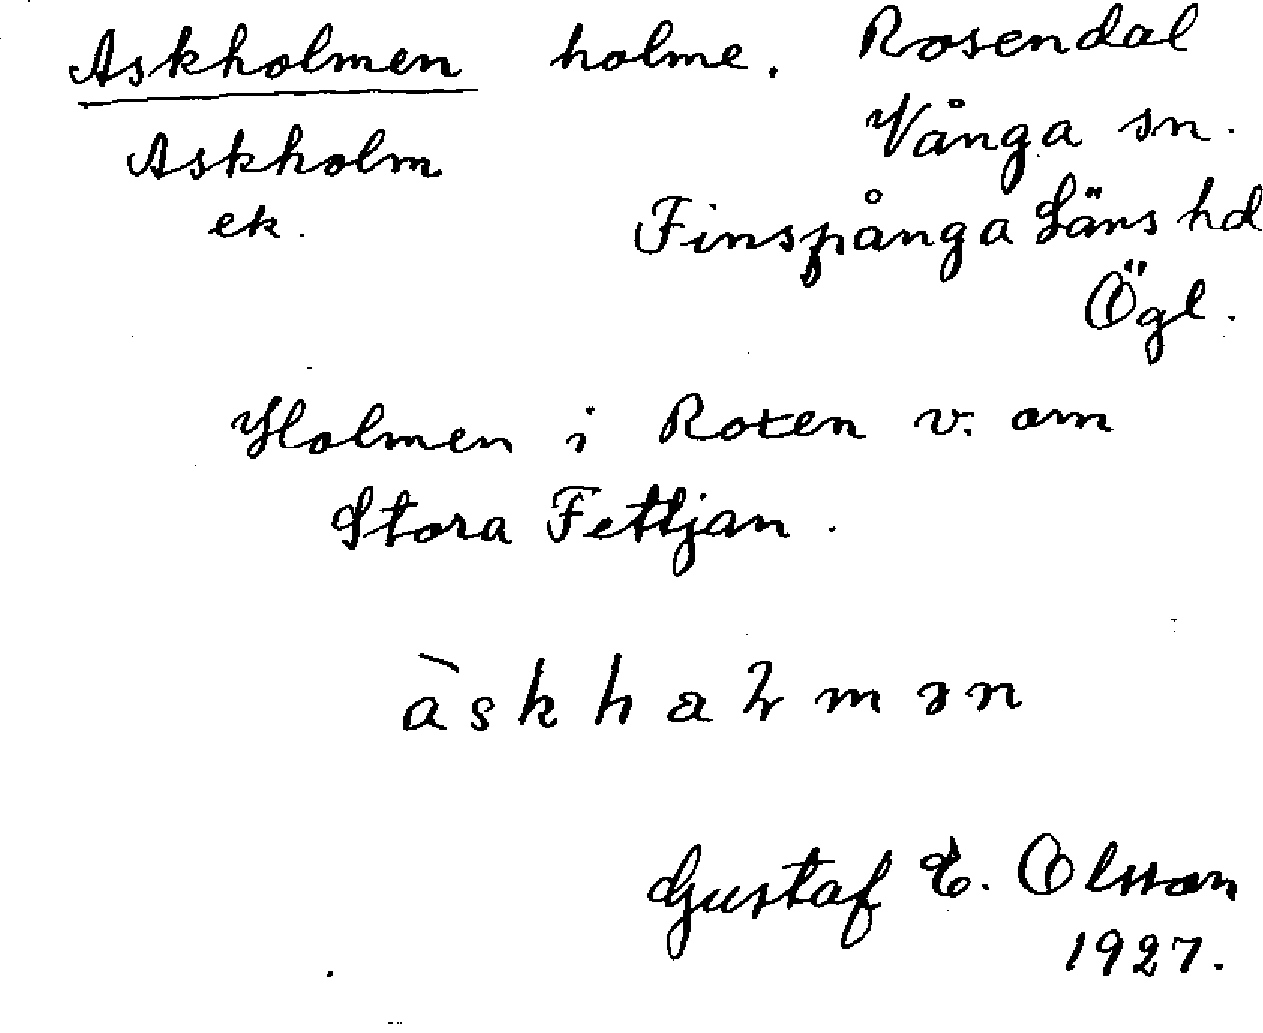 Askholmen holme. Rosendal
Askholm Vånga sn.
ek. Finspånga Läns hd
Ögl.
Holmen i Roxen v. om
Stora Fettjan.
àskhaɮmən
Gustaf E. Olsson
1927.